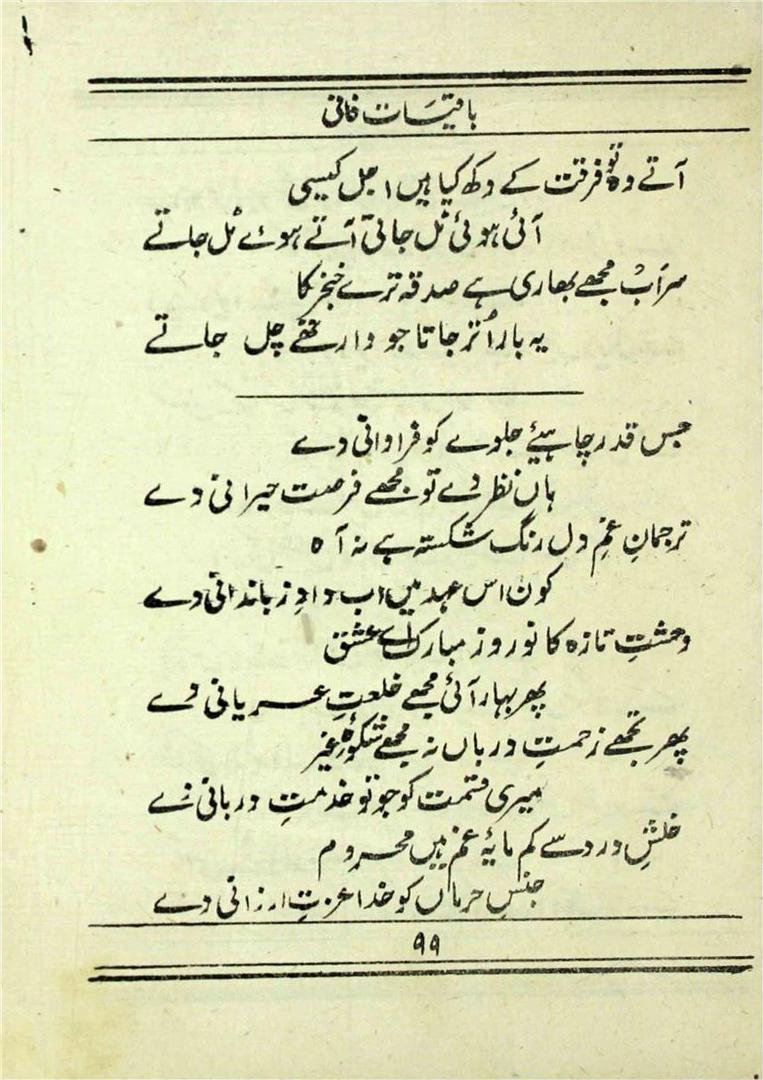 باقیات فانی
آتے وہ تو فرقت کے دکھ کیا ہیں اجل کیسی
آئی ہوئی ٹل جاتی آتے ہوئے ٹل جاتے
سر اب مجھے بھاری ہے صدقہ ترے خنجر کا
یہ بار اُتر جاتا جو وار تھے چل جاتے
جس قدر چاہیئے جلوے کو فراوانی دے
ہاں نظر دے تو مجھے فرصت حیرانی دے
ترجمانِ غمِ دل رنگ شکستہ ہے نہ آہ
کون اس عہد میں اب دادِ زباندانی دے
وحشتِ تازہ کا نوروز مبارک اے عشق
پھر بہار آئی مجھے خلعتِ عریانی دے
پھر تجھے زحمتِ درباں نہ مجھے شکوۂ غیر
میری قسمت کو جو تو خدمتِ دربانی دے
خلشِ درد سے کم مایۂ غم ہیں محروم
جنسِ حرماں کو خدا عزتِ ارزانی دے
۹۹